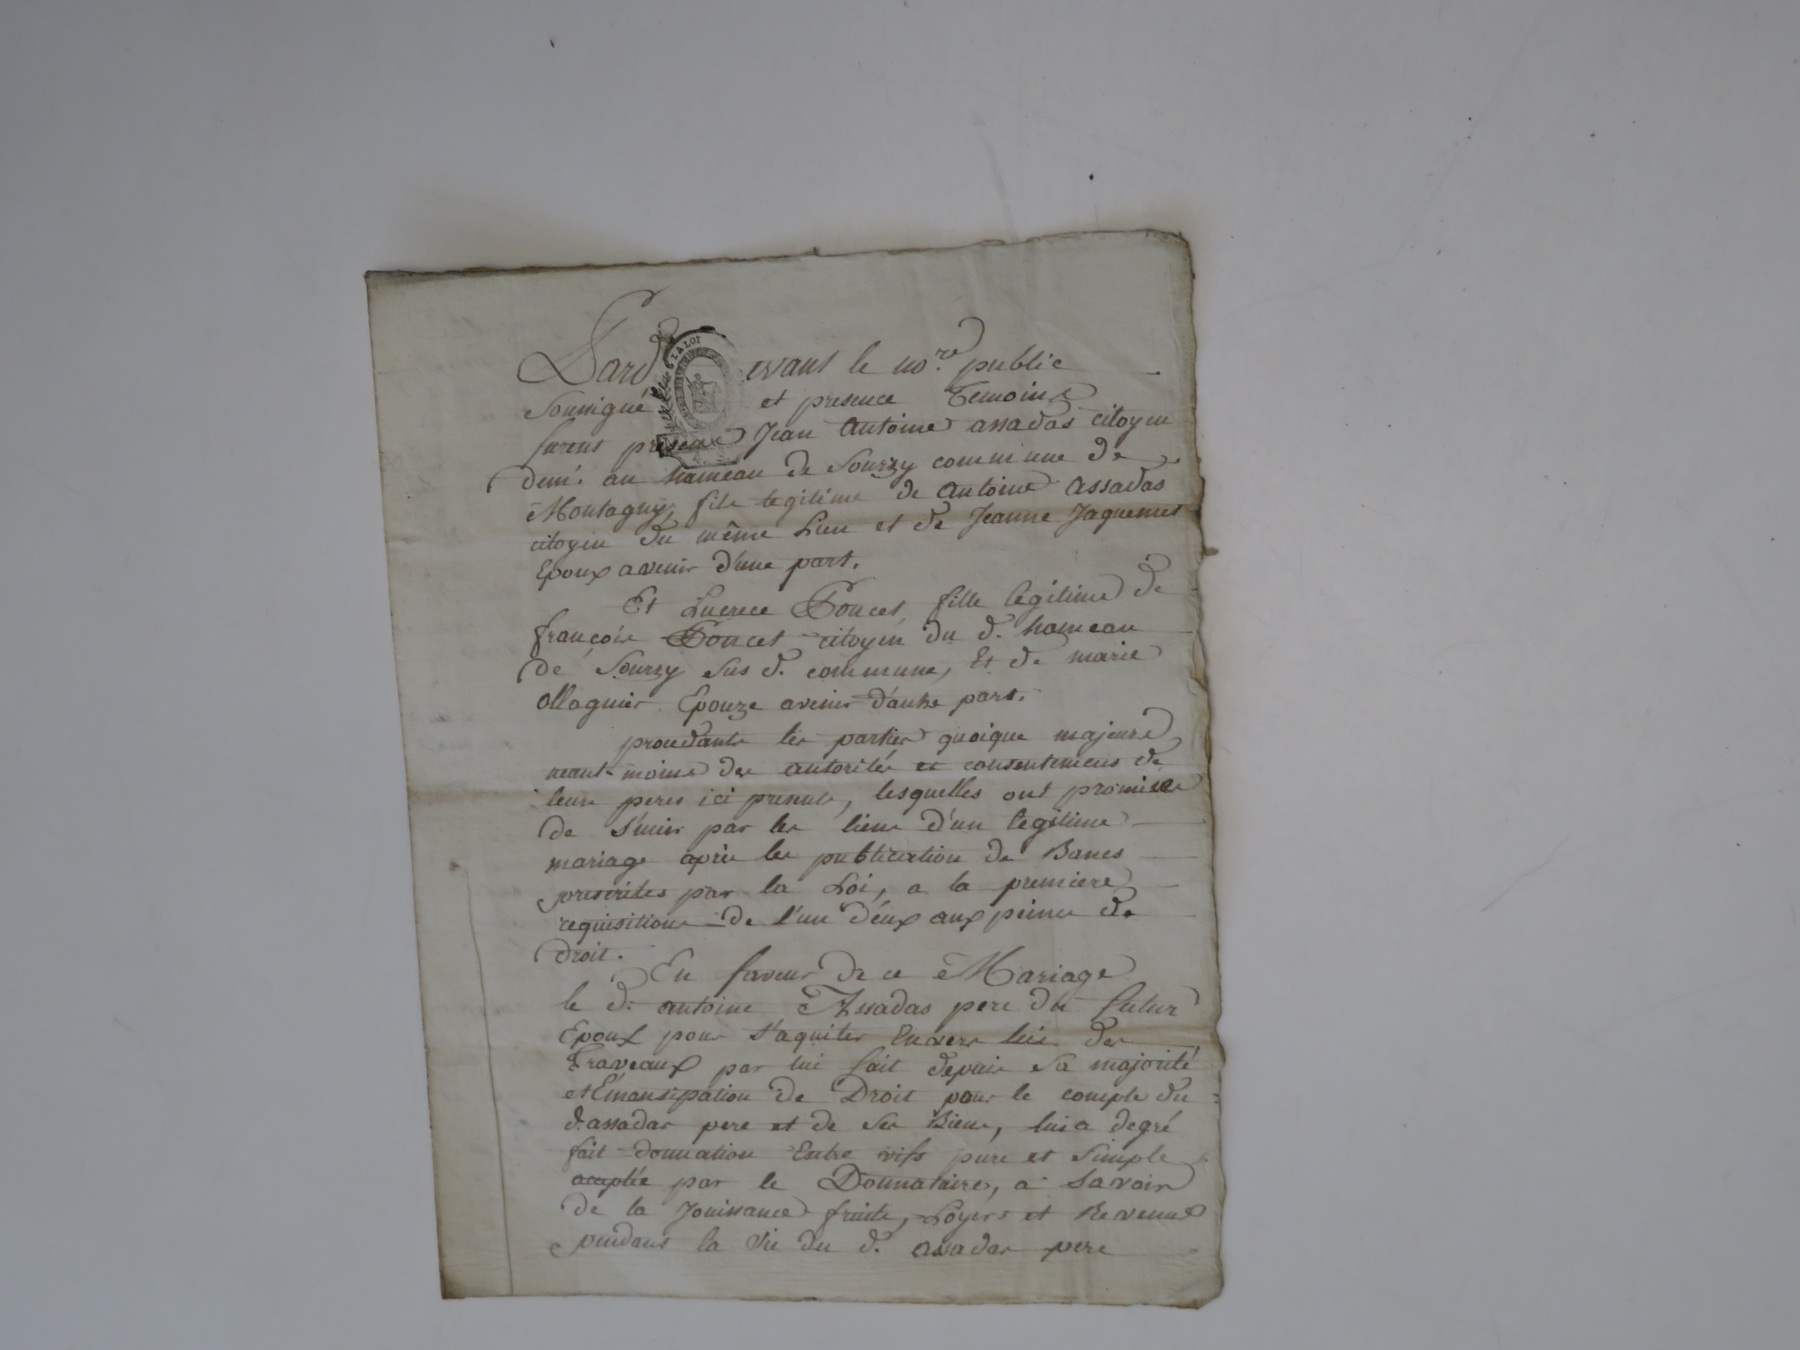 Pardevant le no.re public
Soussigné et presence Temoins
furent presens Jean Antoine assadas citoyen
dem.t au hameau de Sourzy commune de
Montagny, fils legitime de Antoine Assadas
citoyen du même Lieu et de Jeanne Jaquemet
Epoux avenir d'une part.
Et Lucrece Poncet, fille légitime de
françois Poncet citoyen du d. hameau
de Sourzy sus d. commune, Et de marie
Ollagnier Epouze avenir d'autre part.
procedants les parties quoique majeurs
neant-moins des autorités et consentemens de
leurs peres ici presents, lesquelles ont promises
de s'unir par les liens d'un legitime
mariage après les publication de Bancs
prescrites par la Loi, a la premiere
requisitions de l'un d'eux aux peines de
Droit.
En faveur de ce Mariage
le d. antoine Assadas pere du futur
Epoux pour s'aquiter Envers lui des
Traveaux par lui fait depuis sa majorité
et Emansipation de Droit pour le compte du
d. assadas pere et de ses Biens, lui a degré
fait donnation Entre vifs pure et simple
acaptée par le Donnataire, a savoir
de la Jouissance fruits, Loyers et Revenus
pendans la vie du d. assadas pere
LA LOI